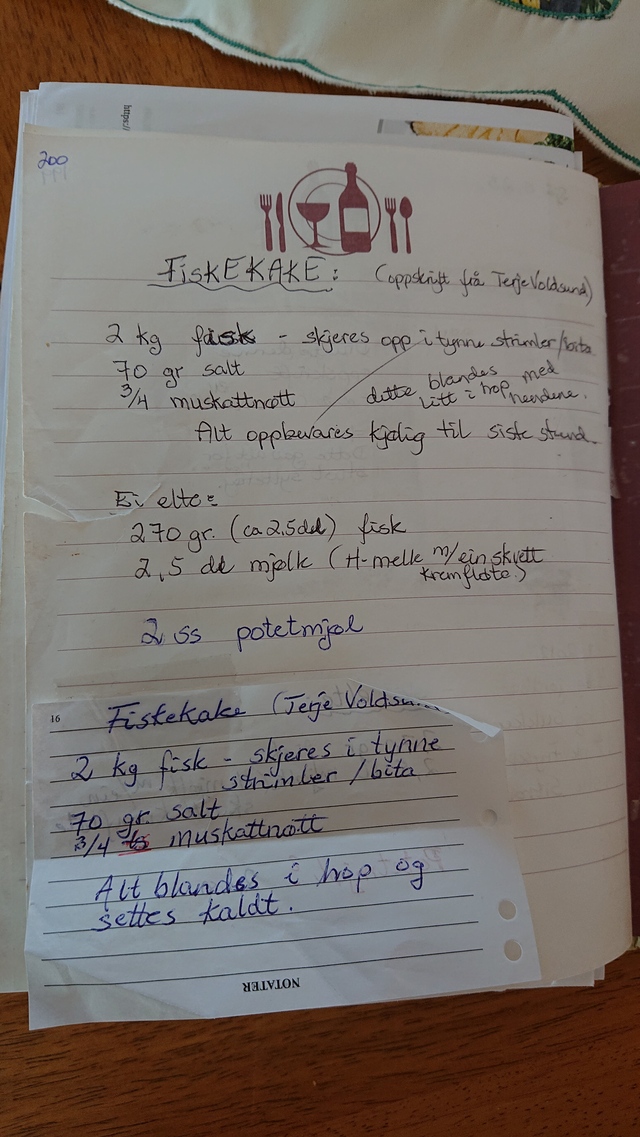 https://
200
FISKEKAKE: (oppskrift frå Terje Voldsund)
2 kg fisk - skjeres opp i tynne strimler/bita
70 gr salt
3/4 muskattnøtt
dette blandes med
litt i hop hendene.
Alt oppbevares kjølig til siste stund.
Ei elte:
270 gr. (ca 2,5 dl) fisk
2,5 dl mjølk (H-melk m/ein skvett
kremfløte.)
2 ss potetmjøl
16
Fiskekake (Terje Voldsu
2 kg fisk - skjeres i tynne
strimler / bita
70 gr. salt
3/4 ts muskattnøtt
Alt blandes i hop og
settes kaldt.
NOTATER